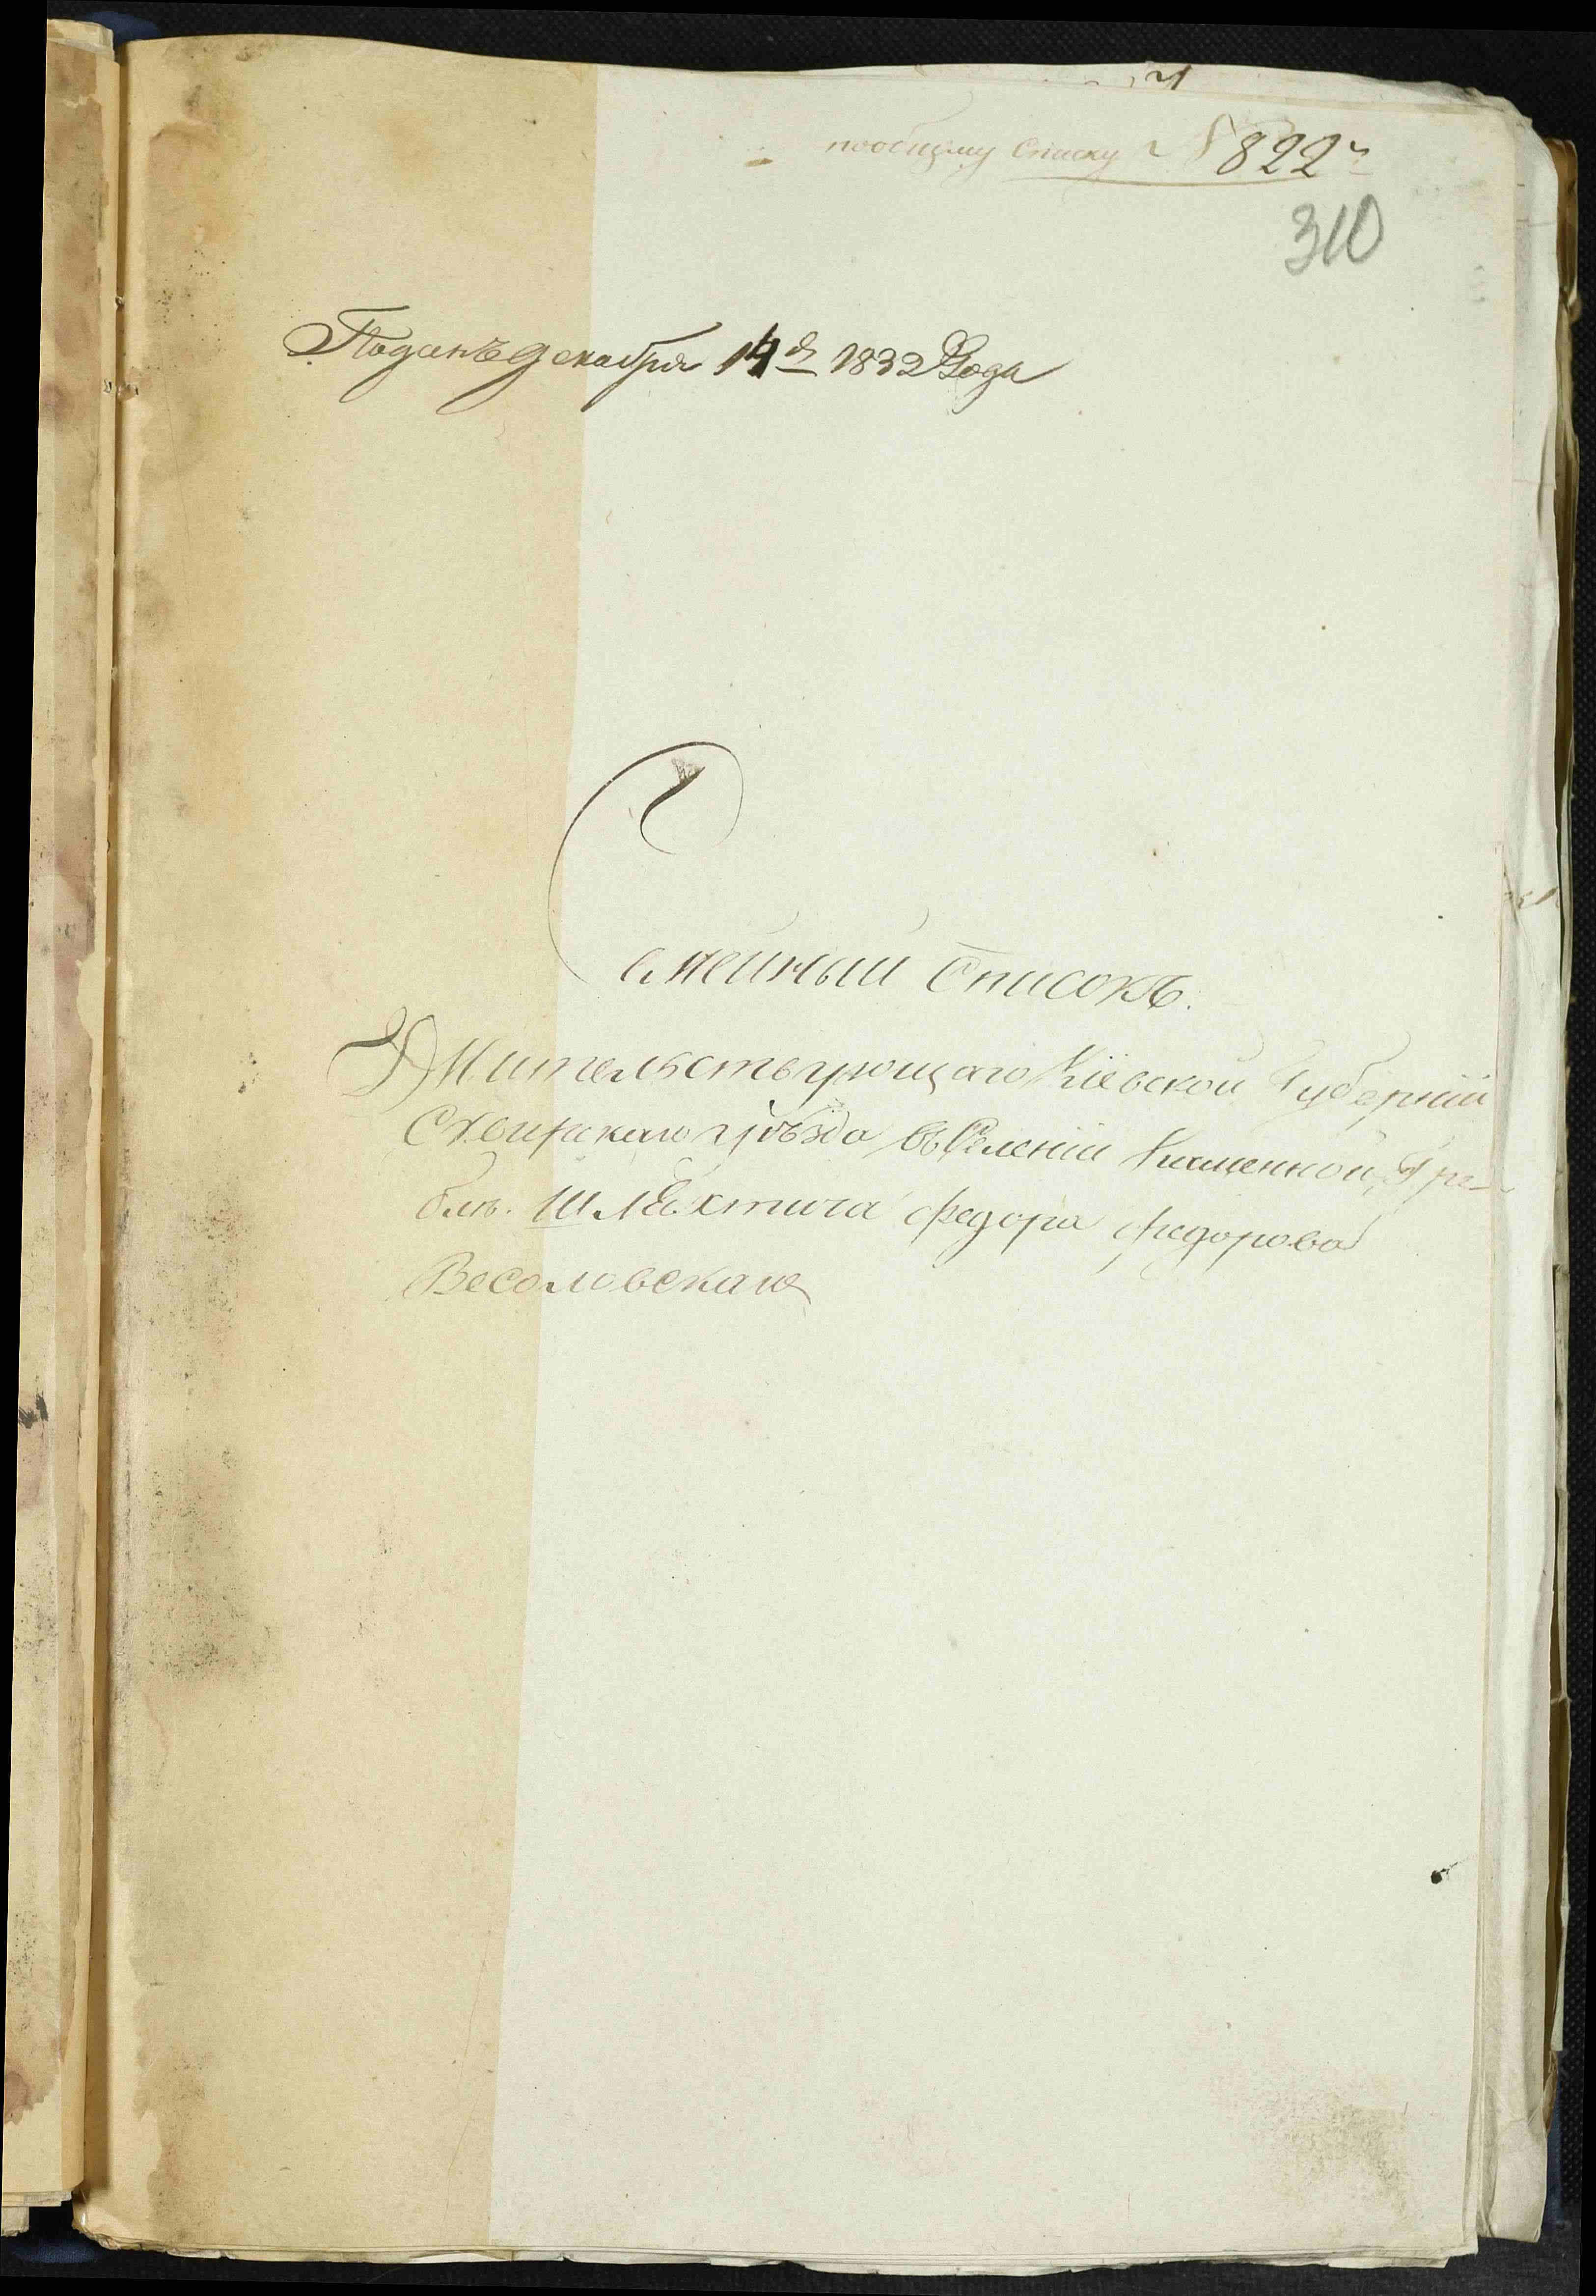 пообщему списку № 822й
310
Поданъ декабря 14д 1832 Года
Семейный Списокъ.
Жительствующаго Кіевской Губерніи
Сквирскаго уѣзда въ Селеніи Каменной Гре-
блѣ. Шляхтича Федора Федорова
Весоловскаго